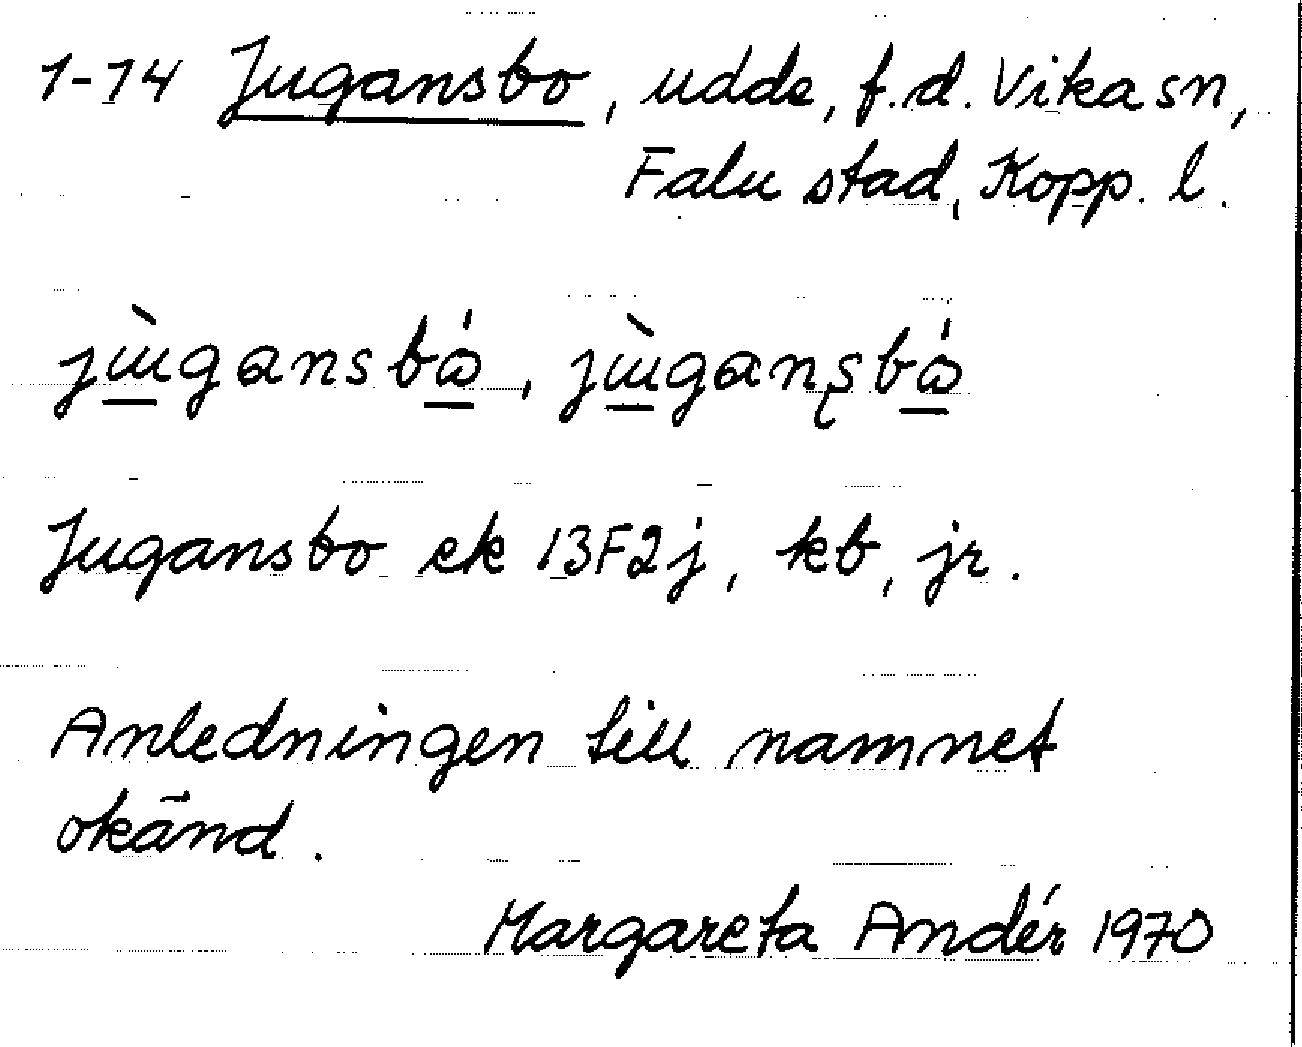 1-74 Jugansbo, udde, f.d. Vika sn,
Falu stad, Kopp. l.
jɯ̀gansbǻ, jɯ̀gaṇsbǻ
Jugansbo ek 13F2j, kb, jr.
Anledningen till namnet
okänd.
Margareta Andér 1970